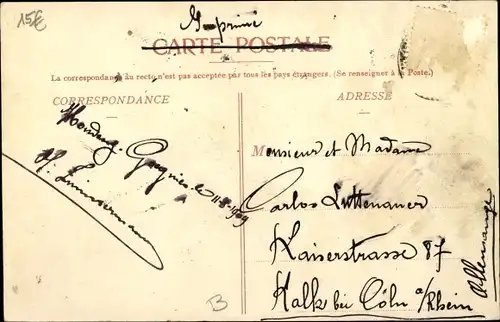 15€
CARTE POSTALE
La correspondance au recto n'est pas acceptée par tous les pays étrangers. (Se renseigner à la Poste.)
CORRESPONDANCE
ADRESSE
Gognies le 11-8-1909
H. Zimmermann
Monsieur et Madame
Carlos Luttenauer
Kaiserstrasse 87
Kalk bei Cöln a/Rhein
Allemagne
B